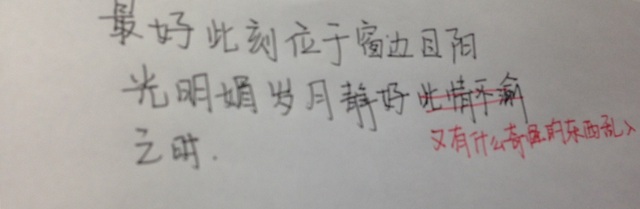 最好此刻位于窗边且阳
光明媚岁月静好此情不渝
又有什么奇怪的东西乱入
之时.